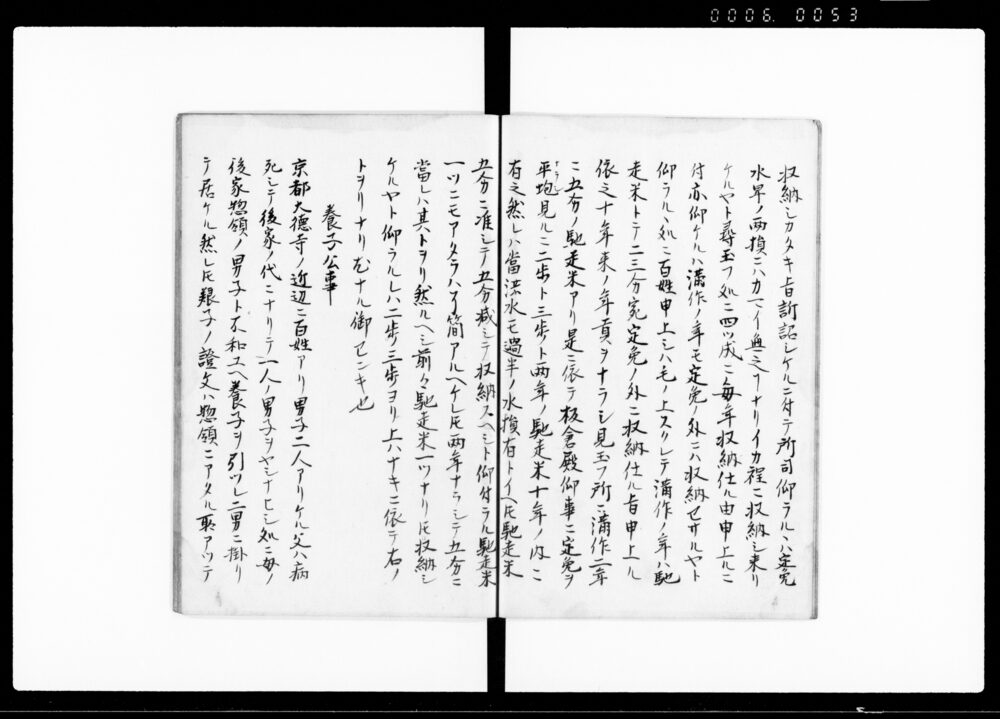 0006. 0053
収納シカタキ旨訴詔シケルニ付テ所司仰ラルヽハ定免
水旱ノ両損ニハカマイ無之フナリイカ程ニ収納シ来リ
ケルヤト尋玉フ処ニ四ツ成ニ毎年収納仕ル由申上ルニ
付亦仰ケルハ満作ノ年モ定免ノ外ニハ収納セサルヤト
仰ラルヽ処ニ百姓申上シハ毛ノ上スクレテ満作ノ年ハ馳
走米トテ二三分宛定免ノ外ニ収納仕ル旨申上ル
依之十年来ノ年貢ヲナラシ見玉フ所ニ満作二年
ニ五歩ノ馳走米アリ是ニ依テ板倉殿仰事ニ定免ヲ
平均見ルニ二歩ト三歩ト両年ノ馳走米十年ノ内ニ
有之然レハ當洪水モ過半ノ水損有トイヘ𪜈馳走米
五分ニ准シテ五分減シテ収納スヘシト仰付ラル馳走米
一ツニモアタラハ了簡アルヘケレ𪜈両年ナラシテ五分ニ
當レハ其トヲリ然ルヘシ前々馳走米一ツナリ𪜈収納シ
ケルヤト仰ラルレハ二歩三歩ヨリ上ハナキニ依テ右ノ
トヲリナリ尤ナル御センキ也
養子公事
京都大徳寺ノ近辺ニ百姓アリ男子二人アリケル父ハ病
死シテ後家ノ代ニナリテ一人ノ男子ヲヤシナヒシ処ニ毎ノ
後家惣領ノ男子ト不和エヘ養子ヲ引ツレ二男ニ掛リ
テ居ケル然レ𪜈親子ノ證文ハ惣領ニアタル取アツテ